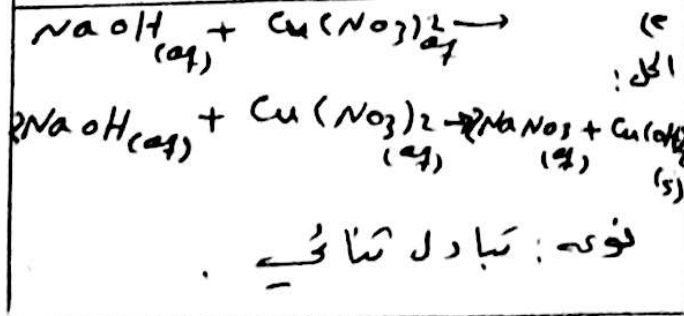 (e NaOH(aq) + Cu(NO3)2 aq →
الحل:
2NaOH(aq) + Cu(NO3)2 (aq) → 2NaNO3 (aq) + Cu(OH)2 (s)
نوعه: تبادل ثنائي.